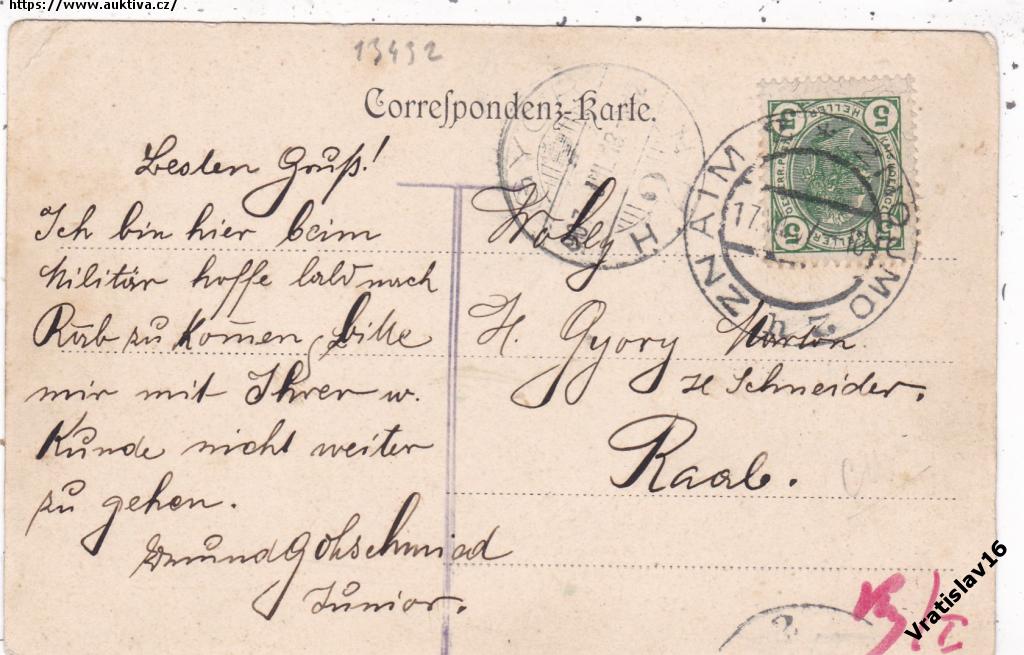 https://www.auktiva.cz/
13432
Correspondenz-Karte.
Besten Gruß!
Ich bin hier beim
Militär hoffe bald nach
Raab zu kommen, bitte
mir mit Ihrer w.
Kunde nicht weiter
zu gehen.
Junior.
Wohlg
H. Györy Marton
Schneider.
Raab.
ZNAIM
ZNOJMO
17
5 HELLER 5
5 HELLER 5
Vratislav16